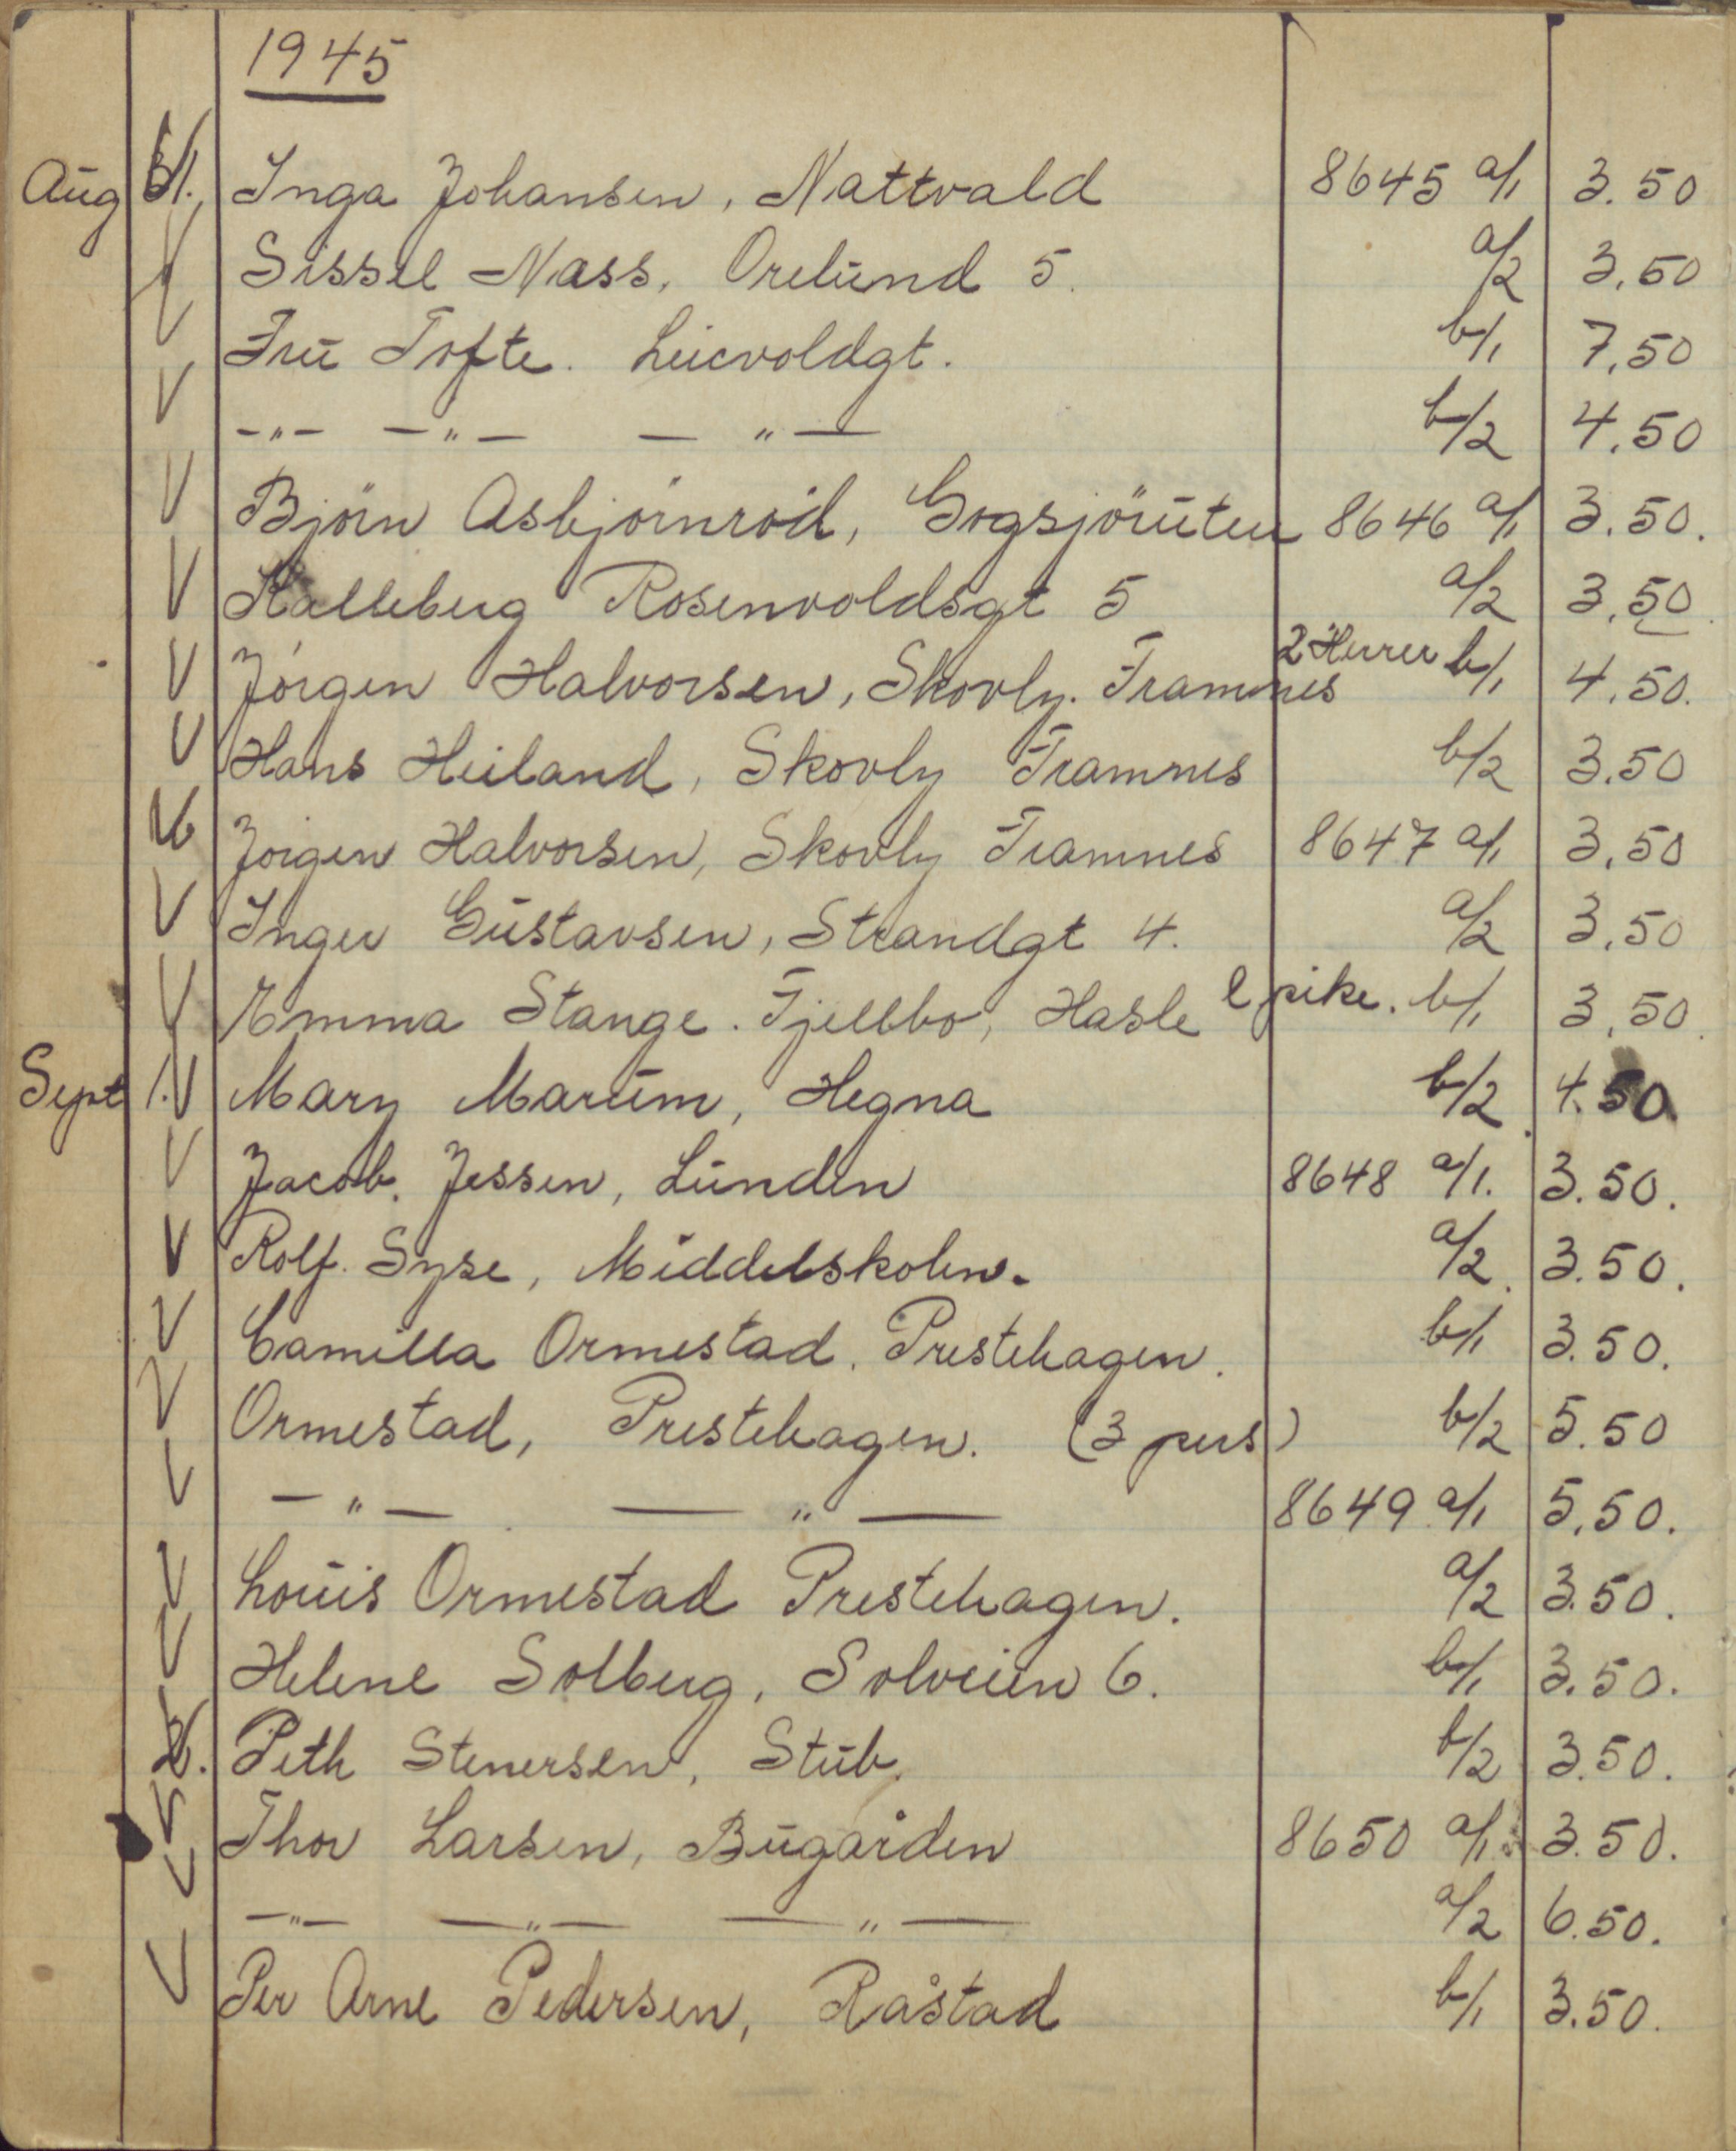 1945
Aug 31. Inga Johansen, Nattvald 8645 a/1 3.50
Sissel Nass, Orelund 5. a/2 3.50
Fru Tofte. b/1 7,50
-"- -"- - " - b/2 4.50
Bjørn Asbjørnrød, Gogsjøruten 8646 a/1 3.50.
Kalleberg Rosenvoldsgt 5 a/2 3.50
Jørgen Halvorsen, Skovly. Framnes 2 Herrer b/1 4.50.
Hans Heiland, Skovly Framnes b/2 3.50
Jørgen Halvorsen, Skovly Framnes 8647 a/1 3,50
Inger Gustavsen, Strandgt 4. a/2 3,50
Emma Stange. Fjellbo, Hasle l pike. b/1 3,50
Sept 1. Mary Marum, Hegna b/2 4.50
Jacob. Jessen, Lunden 8648 a/1. 3.50.
Rolf. Syse, Middelskolen. a/2 3.50.
Camilla Ormestad. Prestehagen. b/1 3.50.
Ormestad, Prestehagen. (3 pers) b/2 5.50
- " - - " - 8649 a/1 5,50.
Louis Ormestad Prestehagen. a/2 3.50.
Helene Solberg, Solveien 6. b/1 3.50.
2. Peth Stenersen, Stub. b/2 3.50.
Thor Larsen, Bugården 8650 a/1 3.50.
-"- -"- - " - a/2 6.50.
Per Arne Pedersen, Råstad b/1 3.50.